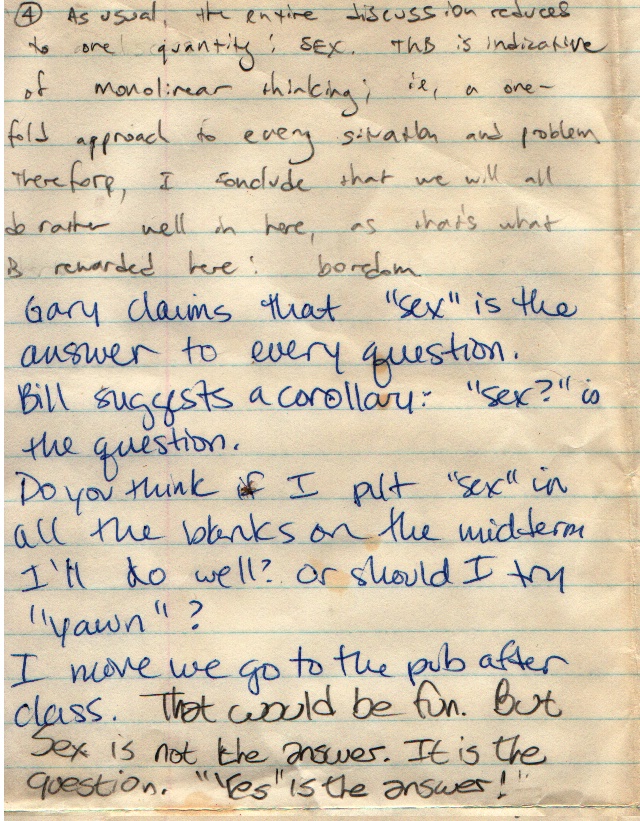 ④ As usual, the entire discussion reduces
to one quantity: SEX. This is indicative
of monolinear thinking; ie, a one-
fold approach to every situation and problem
Therefore, I conclude that we will all
do rather well in here, as that's what
is rewarded here: boredom
Gary claims that "sex" is the
answer to every question.
Bill suggests a corollary: "sex?" is
the question.
Do you think if I put "sex" in
all the blanks on the midterm
I'll do well? or should I try
"yawn"?
I move we go to the pub after
class. That would be fun. But
Sex is not the answer. It is the
question. "Yes" is the answer!"